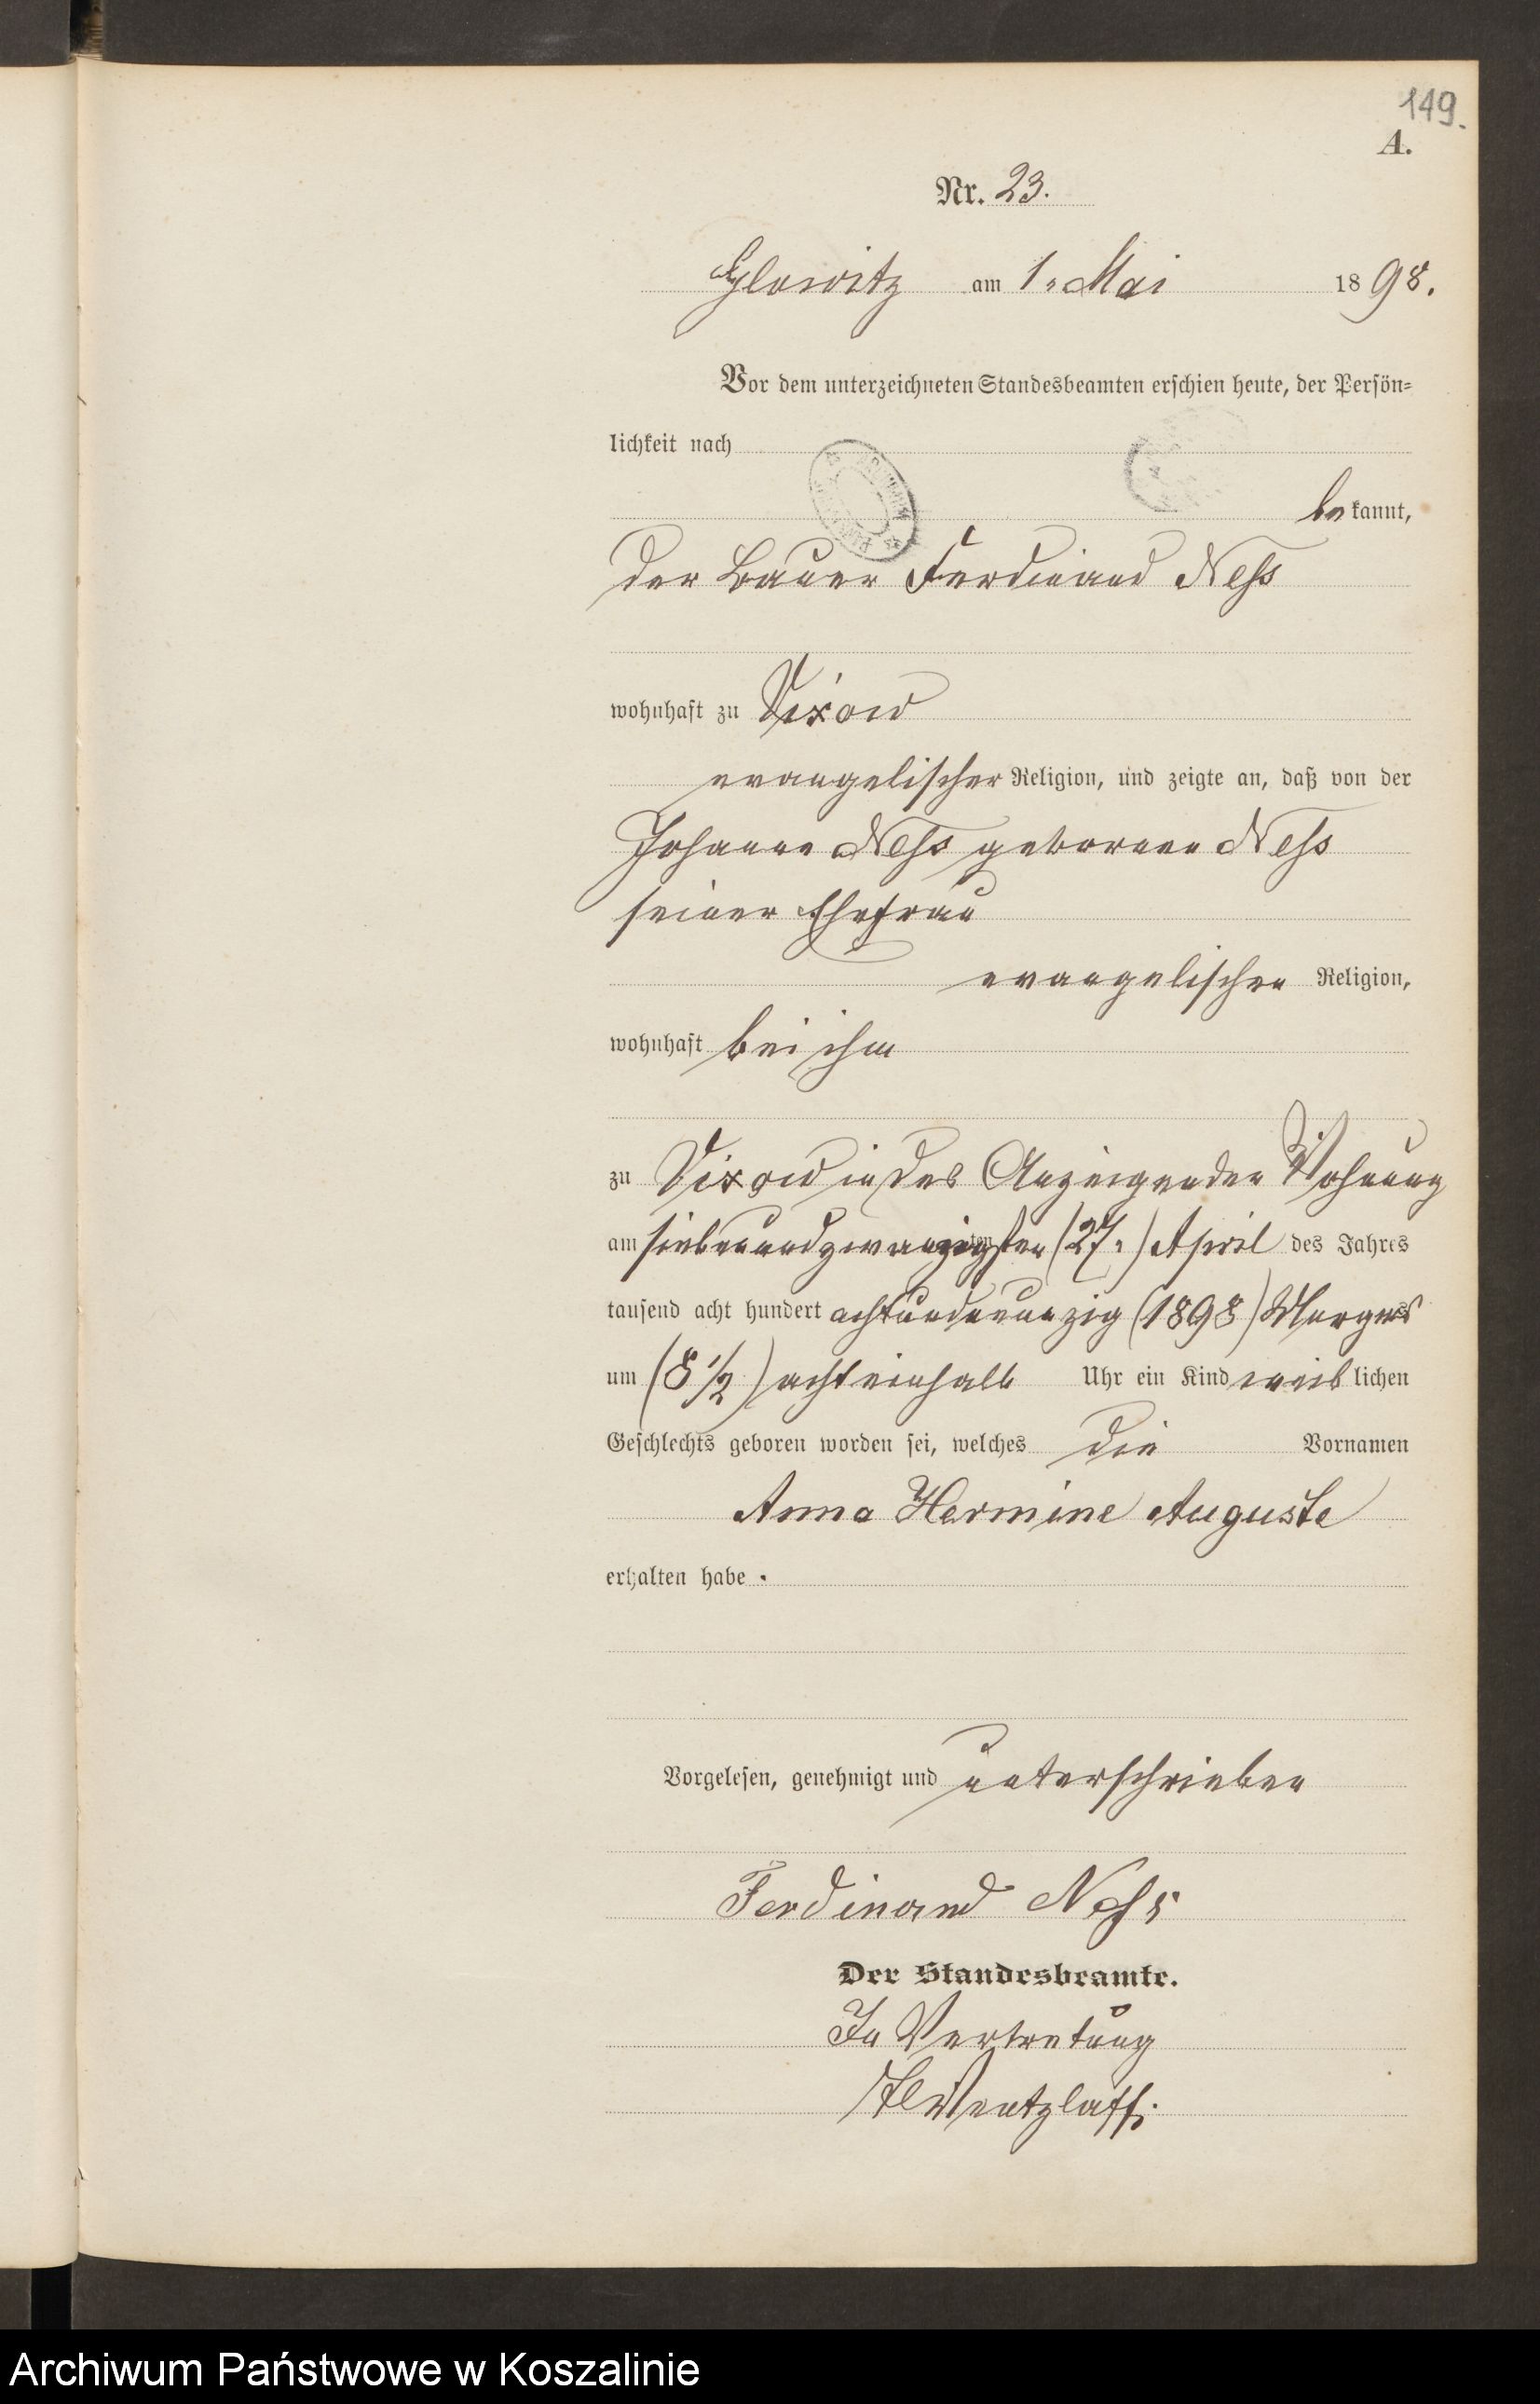 149.
A.
Nr. 23.
Glowitz am 1. Mai 1898.
Vor dem unterzeichneten Standesbeamten erschien heute, der Persön-
lichkeit nach
bekannt,
der Bauer Ferdinand Neß
wohnhaft zu Vixow
evangelischer Religion, und zeigte an, daß von der
Johanne Neß geborenen Neß
seiner Ehefrau
evangelischen Religion,
wohnhaft bei ihm
zu Vixow in des Anzeigenden Wohnung
am siebenundzwanzigsten (27.) April des Jahres
tausend acht hundert achtundneunzig (1898) Morgens
um (8 1/2) achteinhalb Uhr ein Kind weiblichen
Geschlechts geboren worden sei, welches die Vornamen
Anna Hermine Auguste
erhalten habe.
Vorgelesen, genehmigt und unterschrieben
Ferdinand Neß
Der Standesbeamte.
In Vertretung
Wentzlaff.
Archiwum Państwowe w Koszalinie